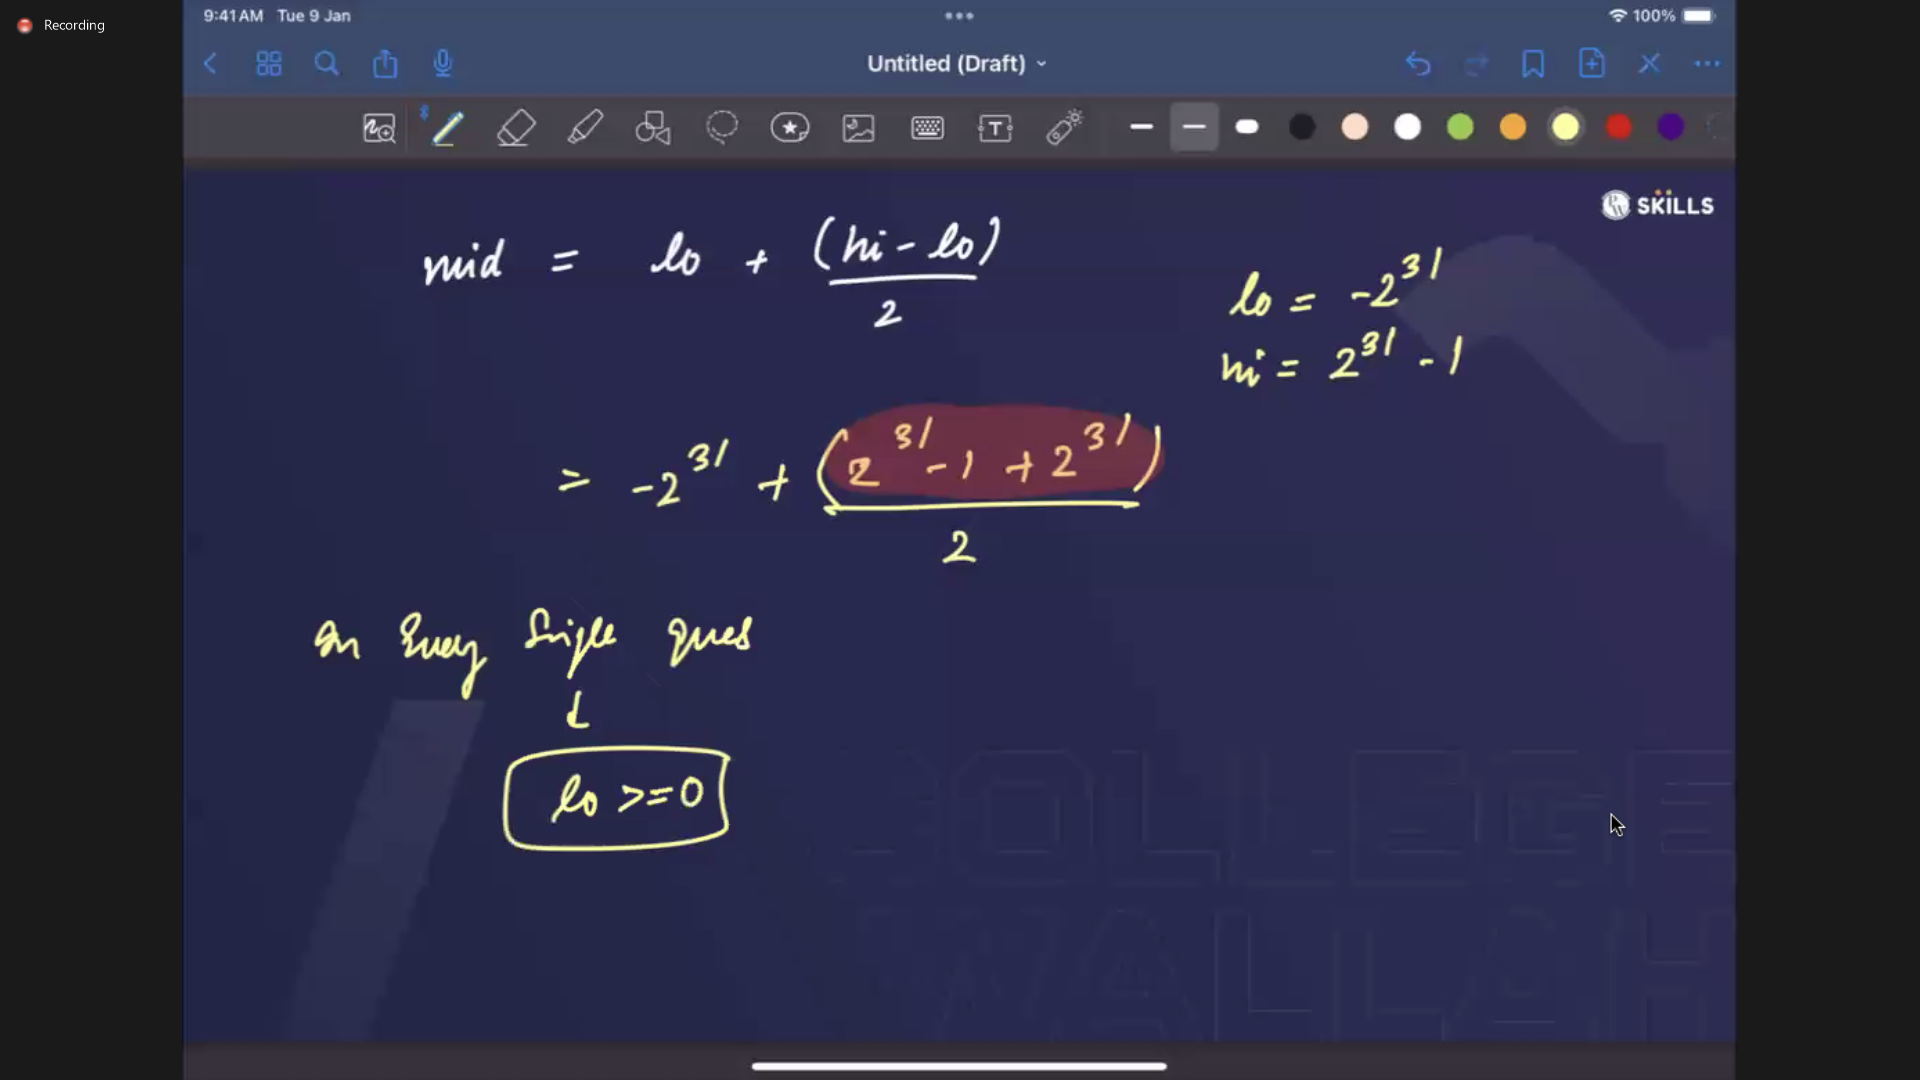 Recording
9:41 AM Tue 9 Jan
100%
Untitled (Draft)
T
SKILLS
mid = lo + (hi - lo) / 2
lo = -2^31
hi = 2^31 - 1
= -2^31 + (2^31 - 1 + 2^31) / 2
In Every Single ques
lo >= 0
COLLEGE
WALLAH